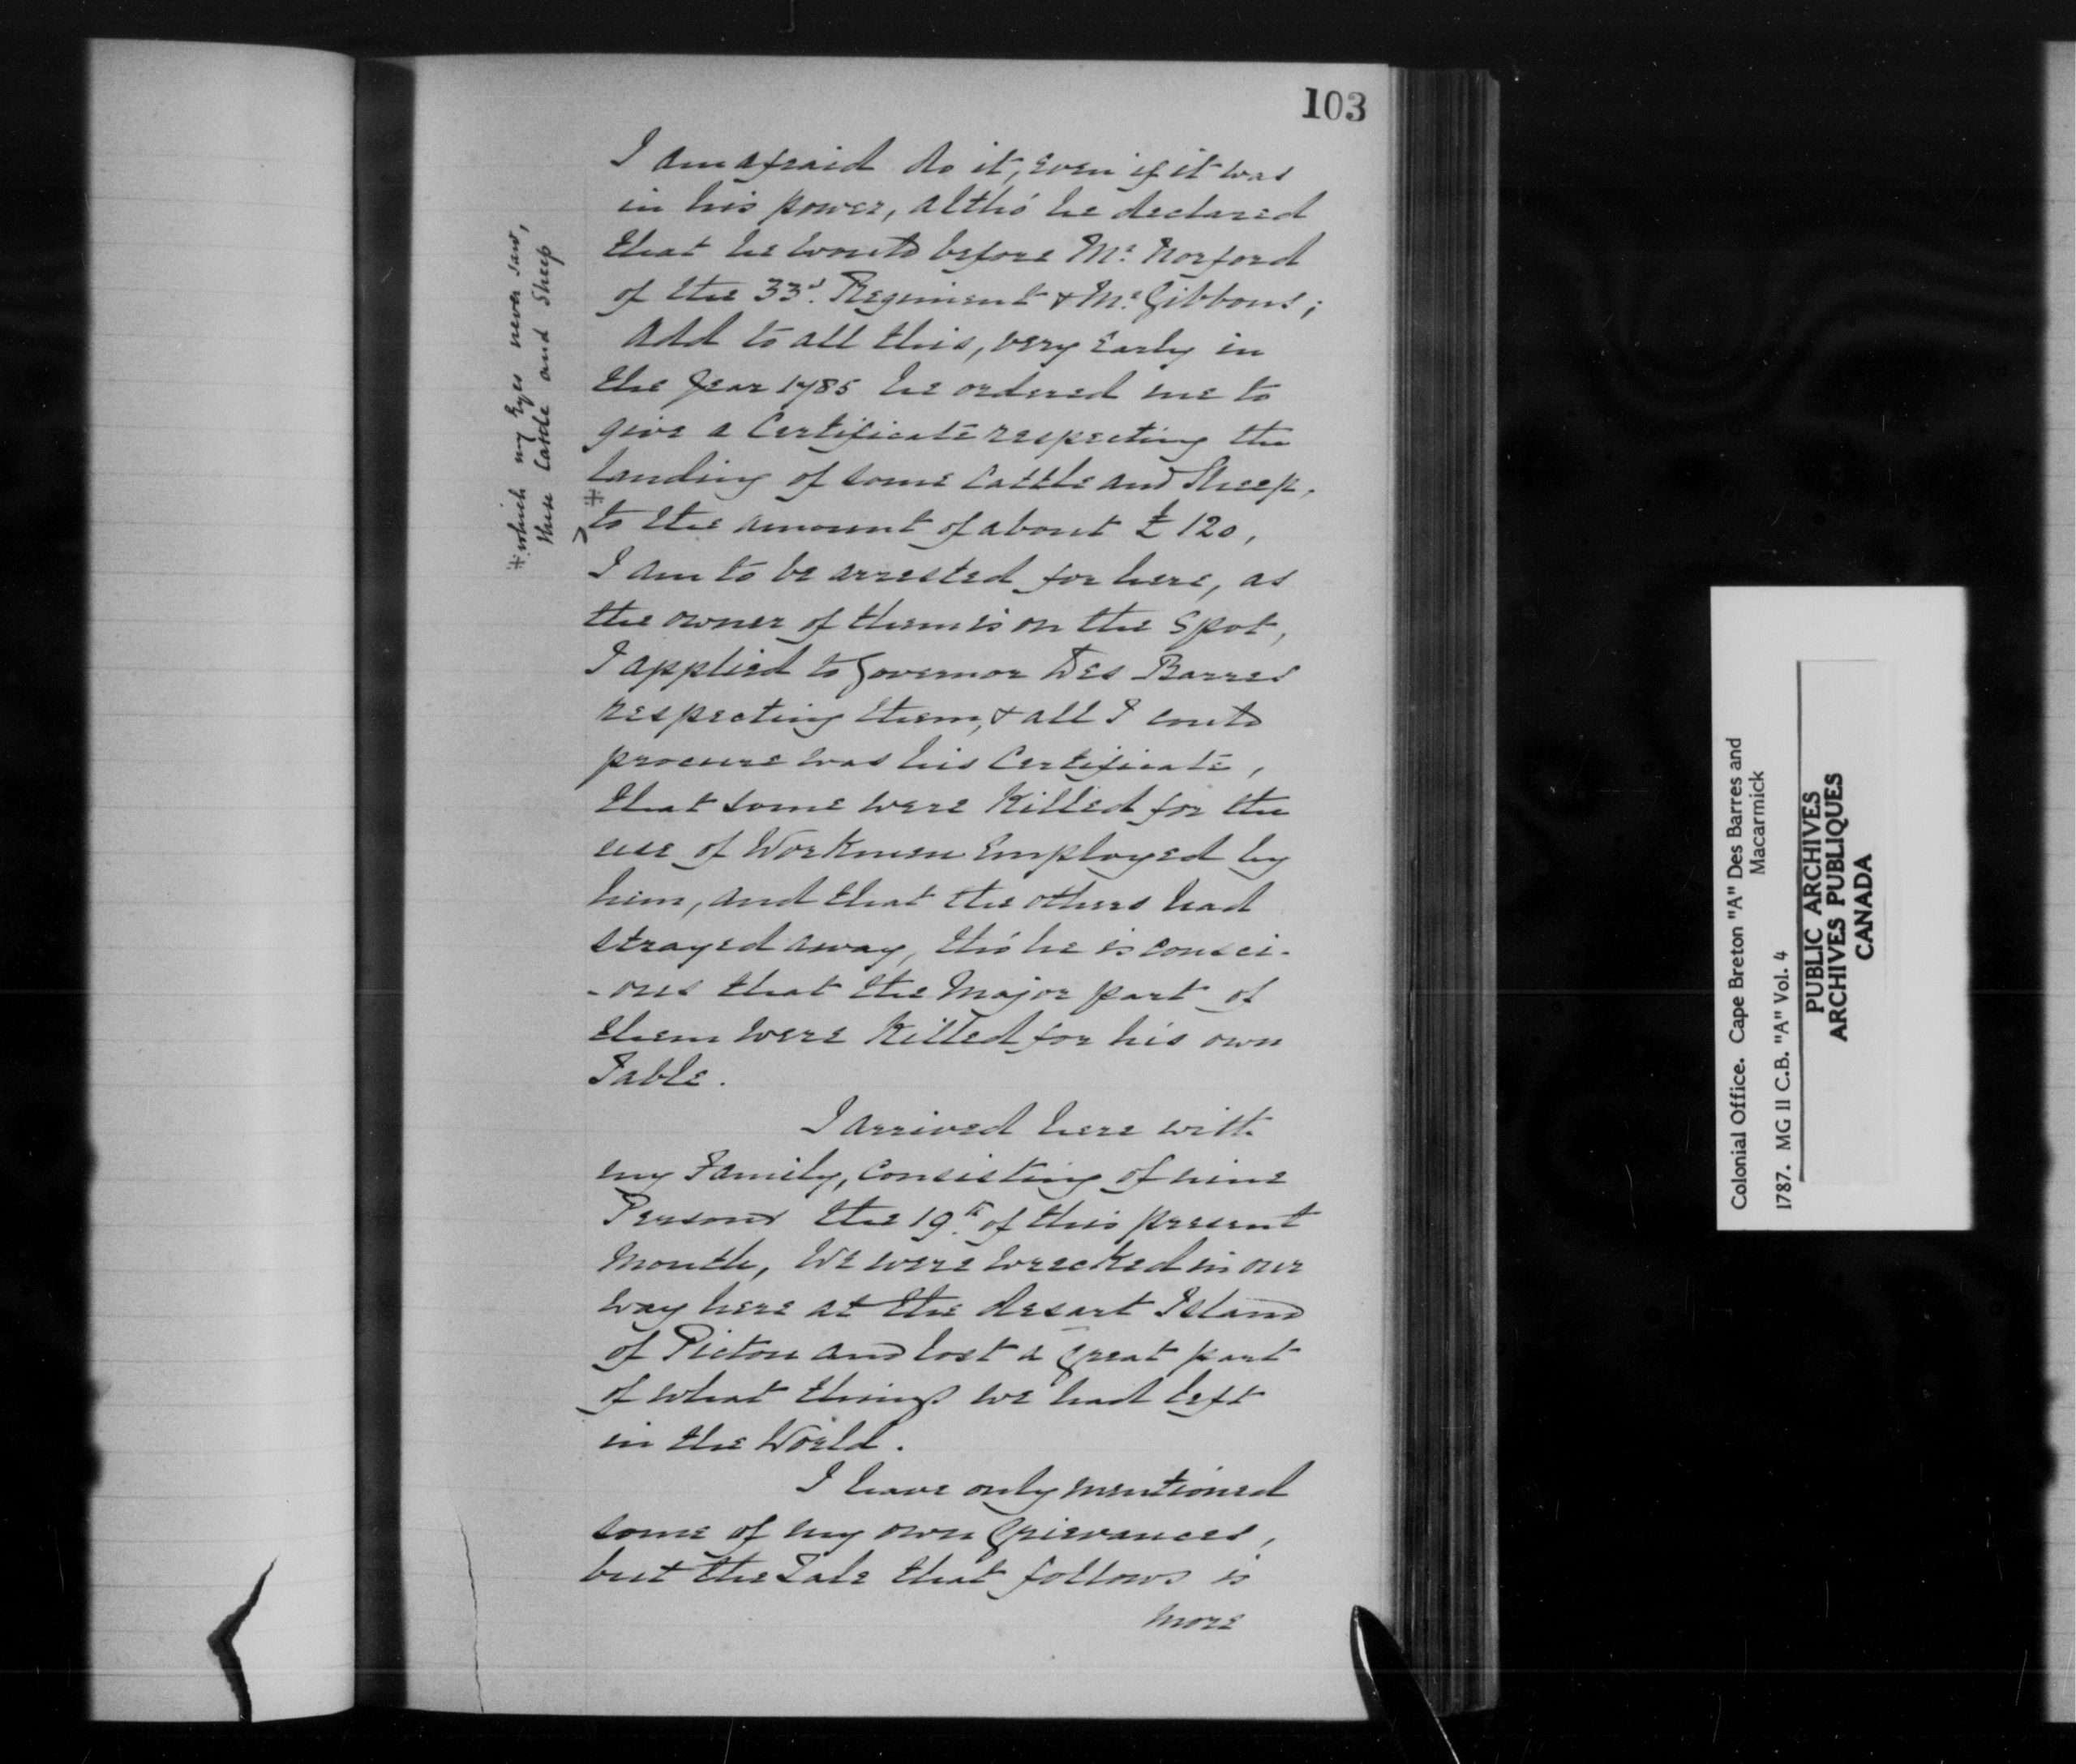 103
I am afraid do it, Even if it was
in his power, altho' he declared
that he would before Mr. Norford
of the 33d. Regiment & Mr. Gibbons;
Add to all this, very Early in
the Year 1785 he ordered me to
give a Certificate respecting the
landing of some Cattle and Sheep,
‡
to the amount of about £120,
I am to be arrested for here, as
the owner of them is on the Spot,
I applied to Governor Des Barres
respecting them, & all I could
procure was his Certificate,
that some were Killed for the
use of Workmen Employed by
him, and that the others had
strayed away, tho' he is consci-
-ous that the Major part of
them were Killed for his own
Table.
I arrived here with
my Family, Consisting of nine
Persons the 19th. of this present
Month, We were wrecked in our
way here at the desart Island
of Pictou and lost a Great part
of what things we had left
in the World.
I have only mentioned
some of my own Grievances,
but the Tale that follows is
more
‡ which my Eyes never saw,
these Cattle and Sheep
Colonial Office. Cape Breton "A" Des Barres and
Macarmick
1787. MG 11 C.B. "A" Vol. 4
PUBLIC ARCHIVES
ARCHIVES PUBLIQUES
CANADA